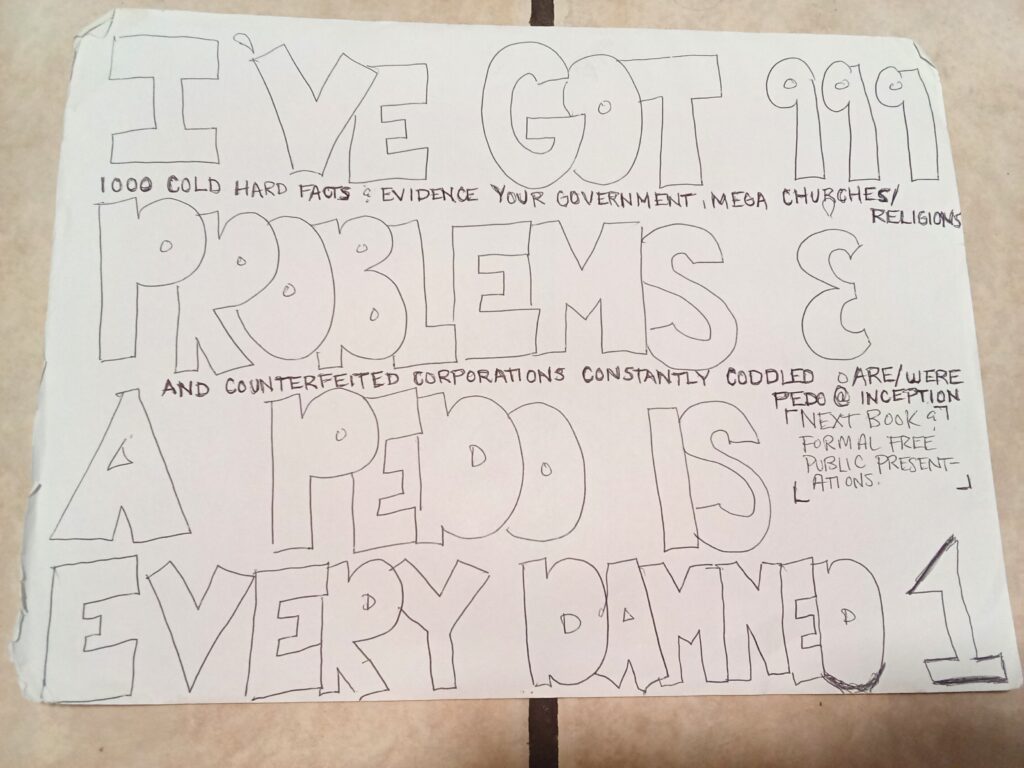 I'VE GOT 999
1000 COLD HARD FACTS & EVIDENCE YOUR GOVERNMENT, MEGA CHURCHES/
RELIGIONS
PROBLEMS &
AND COUNTERFEITED CORPORATIONS CONSTANTLY CODDLED & ARE/WERE
PEDO @ INCEPTION
A PEDO IS
NEXT BOOK &
FORMAL FREE
PUBLIC PRESENT-
ATIONS.
EVERY DAMNED 1